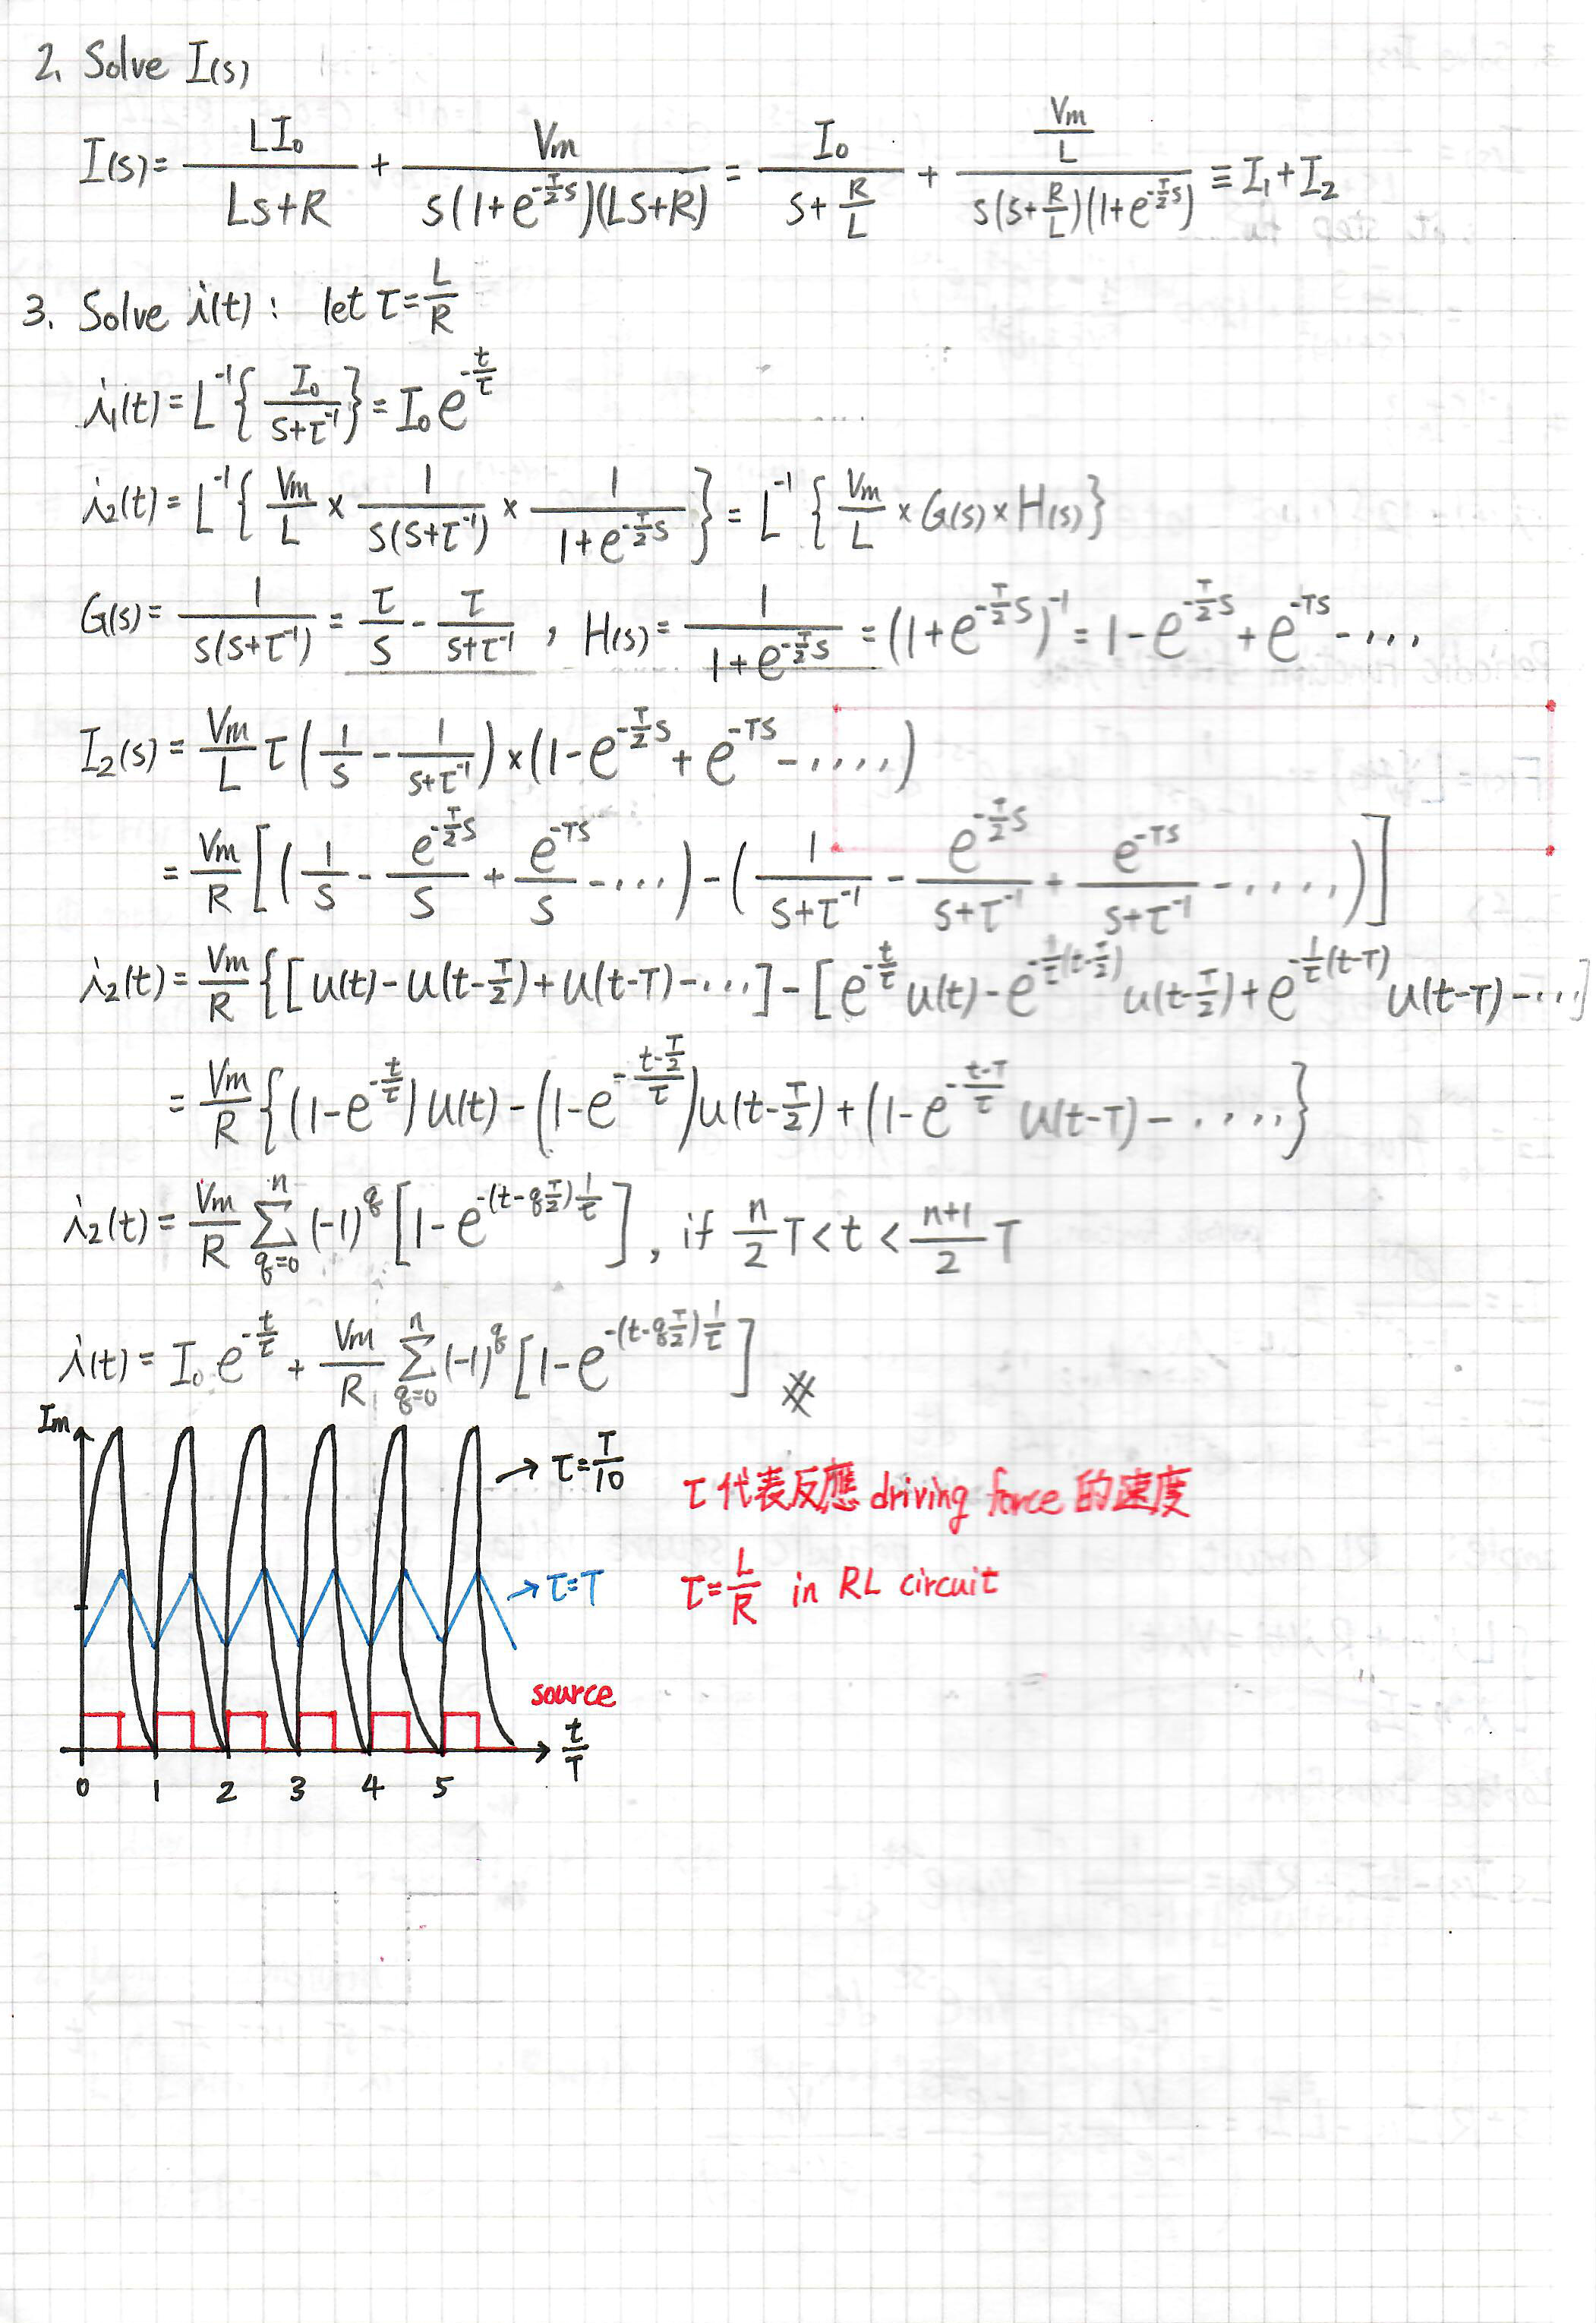 2. Solve I(s)
I(s) = LI₀/(Ls+R) + Vm/(s(1+e^(-T/2 s))(Ls+R)) = I₀/(s+R/L) + (Vm/L)/(s(s+R/L)(1+e^(-T/2 s))) ≡ I₁+I₂
3. Solve i(t): let τ=L/R
i₁(t) = L⁻¹{I₀/(s+τ⁻¹)} = I₀e^(-t/τ)
i₂(t) = L⁻¹{Vm/L × 1/(s(s+τ⁻¹)) × 1/(1+e^(-T/2 s))} = L⁻¹{Vm/L × G(s) × H(s)}
G(s) = 1/(s(s+τ⁻¹)) = τ/s - τ/(s+τ⁻¹) , H(s) = 1/(1+e^(-T/2 s)) = (1+e^(-T/2 s))⁻¹ = 1-e^(-T/2 s)+e^(-Ts)-....
I₂(s) = Vm/L τ(1/s - 1/(s+τ⁻¹)) × (1-e^(-T/2 s)+e^(-Ts)-.....)
= Vm/R [(1/s - e^(-T/2 s)/s + e^(-Ts)/s -....) - (1/(s+τ⁻¹) - e^(-T/2 s)/(s+τ⁻¹) + e^(-Ts)/(s+τ⁻¹) -.....)]
i₂(t) = Vm/R {[u(t)-u(t-T/2)+u(t-T)-...] - [e^(-t/τ) u(t)-e^(-1/τ(t-T/2)) u(t-T/2)+e^(-1/τ(t-T)) u(t-T)-...]
= Vm/R {(1-e^(-t/τ))u(t)-(1-e^(-(t-T/2)/τ))u(t-T/2)+(1-e^(-(t-T)/τ) u(t-T)-.....}
i₂(t) = Vm/R Σ_(q=0)^n (-1)^q [1-e^(-(t-qT/2)1/τ)], if n/2 T < t < (n+1)/2 T
i(t) = I₀e^(-t/τ) + Vm/R Σ_(q=0)^n (-1)^q [1-e^(-(t-qT/2)1/τ)]
Im
→ τ=T/10
τ代表反應 driving force 的速度
→ τ=T
τ=L/R in RL circuit
source
t/T
0 1 2 3 4 5